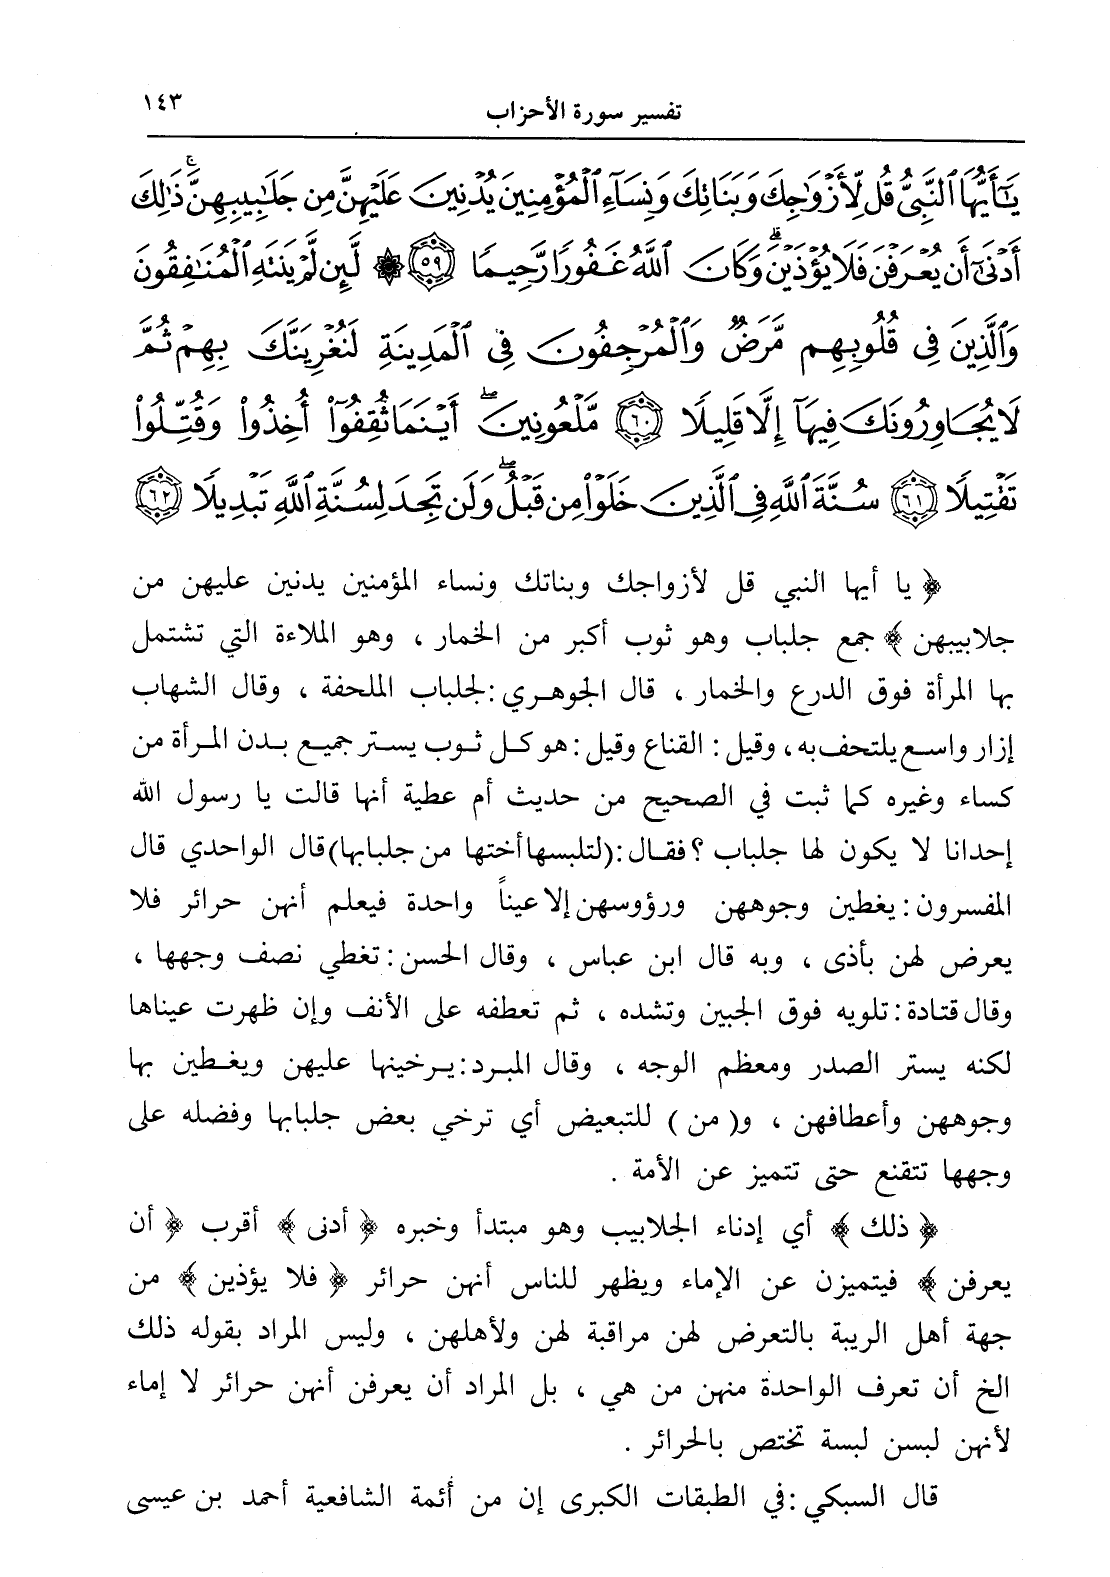 تفسير سورة الأحزاب ١٤٣
يَٰٓأَيُّهَا ٱلنَّبِىُّ قُل لِّأَزْوَٰجِكَ وَبَنَاتِكَ وَنِسَآءِ ٱلْمُؤْمِنِينَ يُدْنِينَ عَلَيْهِنَّ مِن جَلَٰبِيبِهِنَّ ۚ ذَٰلِكَ
أَدْنَىٰٓ أَن يُعْرَفْنَ فَلَا يُؤْذَيْنَ ۗ وَكَانَ ٱللَّهُ غَفُورًا رَّحِيمًا ﴿٥٩﴾ ۞ لَّئِن لَّمْ يَنتَهِ ٱلْمُنَٰفِقُونَ
وَٱلَّذِينَ فِى قُلُوبِهِم مَّرَضٌ وَٱلْمُرْجِفُونَ فِى ٱلْمَدِينَةِ لَنُغْرِيَنَّكَ بِهِمْ ثُمَّ
لَا يُجَاوِرُونَكَ فِيهَآ إِلَّا قَلِيلًا ﴿٦٠﴾ مَّلْعُونِينَ ۖ أَيْنَمَا ثُقِفُوٓا۟ أُخِذُوا۟ وَقُتِّلُوا۟
تَقْتِيلًا ﴿٦١﴾ سُنَّةَ ٱللَّهِ فِى ٱلَّذِينَ خَلَوْا۟ مِن قَبْلُ ۖ وَلَن تَجِدَ لِسُنَّةِ ٱللَّهِ تَبْدِيلًا ﴿٦٢﴾
﴿ يا أيها النبي قل لأزواجك وبناتك ونساء المؤمنين يدنين عليهن من
جلابيبهن ﴾ جمع جلباب وهو ثوب أكبر من الخمار ، وهو الملاءة التي تشتمل
بها المرأة فوق الدرع والخمار ، قال الجوهري : لجلباب الملحفة ، وقال الشهاب
إزار واسع يلتحف به ، وقيل : القناع وقيل : هو كل ثوب يستر جميع بدن المرأة من
كساء وغيره كما ثبت في الصحيح من حديث أم عطية أنها قالت يا رسول الله
إحدانا لا يكون لها جلباب ؟ فقال : (لتلبسها أختها من جلبابها) قال الواحدي قال
المفسرون : يغطين وجوههن ورؤوسهن إلا عيناً واحدة فيعلم أنهن حرائر فلا
يعرض لهن بأذى ، وبه قال ابن عباس ، وقال الحسن : تغطي نصف وجهها ،
وقال قتادة : تلويه فوق الجبين وتشده ، ثم تعطفه على الأنف وإن ظهرت عيناها
لكنه يستر الصدر ومعظم الوجه ، وقال المبرد : يرخينها عليهن ويغطين بها
وجوههن وأعطافهن ، و( من ) للتبعيض أي ترخي بعض جلبابها وفضله على
وجهها تتقنع حتى تتميز عن الأمة .
﴿ ذلك ﴾ أي إدناء الجلابيب وهو مبتدأ وخبره ﴿ أدنى ﴾ أقرب ﴿ أن
يعرفن ﴾ فيتميزن عن الإماء ويظهر للناس أنهن حرائر ﴿ فلا يؤذين ﴾ من
جهة أهل الريبة بالتعرض لهن مراقبة لهن ولأهلهن ، وليس المراد بقوله ذلك
الخ أن تعرف الواحدة منهن من هي ، بل المراد أن يعرفن أنهن حرائر لا إماء
لأنهن لبسن لبسة تختص بالحرائر .
قال السبكي : في الطبقات الكبرى إن من أئمة الشافعية أحمد بن عيسى